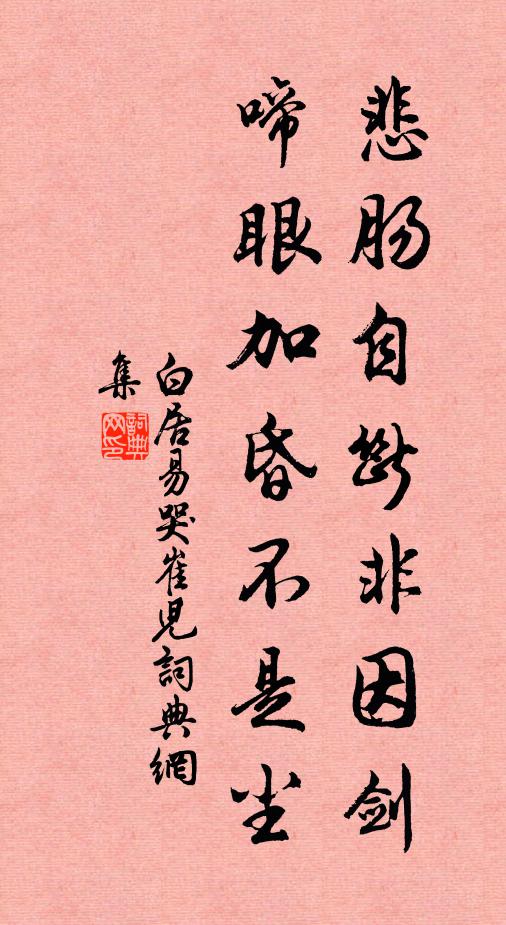 悲肠自断非因剑
啼眼加昏不是尘
白居易哭崔児詞典網
集
詞典
网印